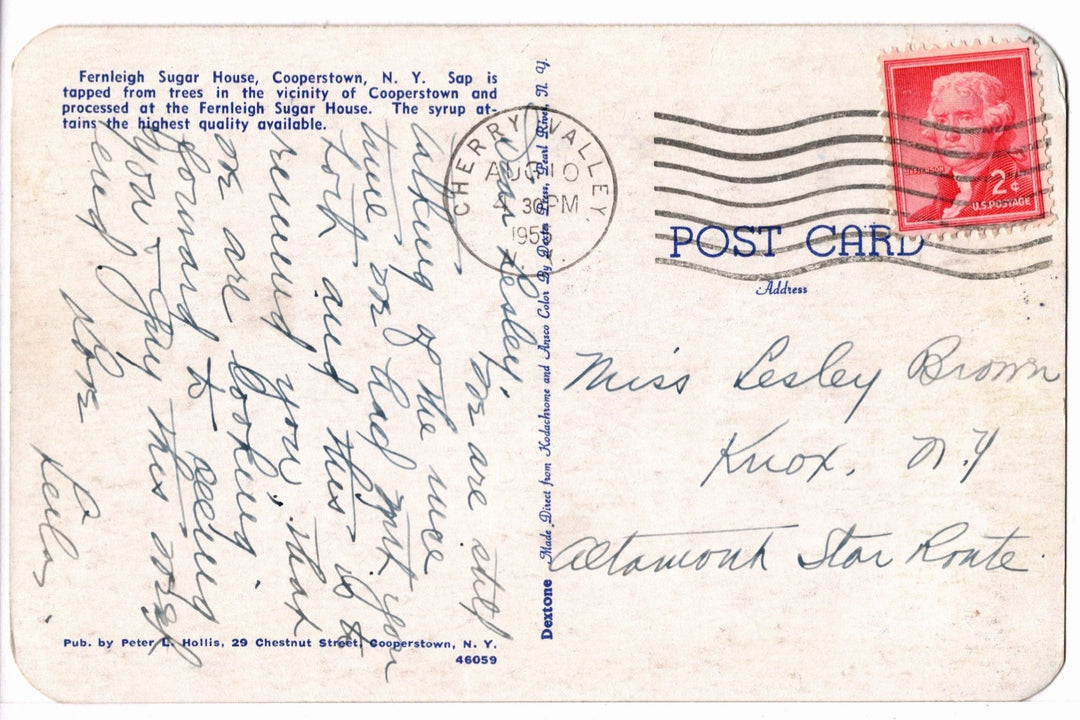 Fernleigh Sugar House, Cooperstown, N. Y. Sap is
tapped from trees in the vicinity of Cooperstown and
processed at the Fernleigh Sugar House. The syrup at-
tains the highest quality available.
Dear Lesley,
We are still
talking of the nice
time we had
York and this is to
remind you, that
we are looking
forward to seeing
you - Guy this
Lena
Pub. by Peter L. Hollis, 29 Chestnut Street, Cooperstown, N. Y.
46059
Dextone Made Direct from Kodachrome and Ansco Color By Dexter Press, Pearl River, N. Y.
CHERRY VALLEY
AUG 10
4 30 PM
JEFFERSON
2¢
U.S. POSTAGE
POST CARD
Address
Miss Lesley Brown
Knox, N.Y
Altamont Star Route